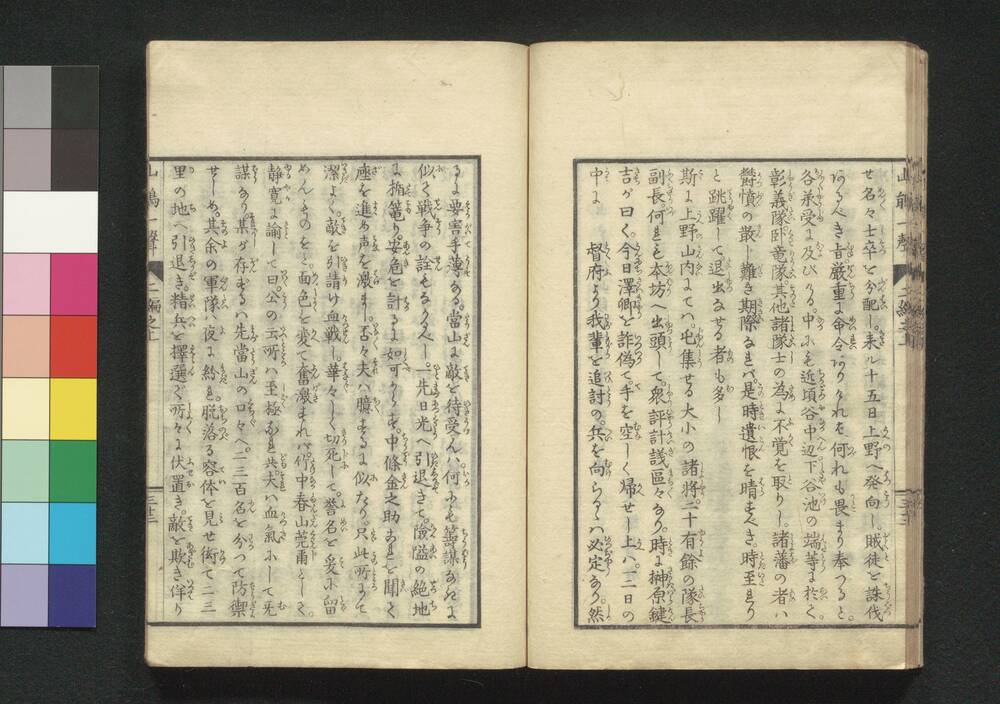 せ名々士卒を分配し。来ル十五日上野へ発向し。賊徒を誅伐
あるべき旨。厳重に命令ありければ。何れも畏まり奉つると。
各承受に及びける。中にも近頃谷中辺下谷池の端等に於て。
彰義隊卧竜隊。其他諸隊士の為に不覚を取りし。諸藩の者ハ
欝憤の散し難き期際なれバ。是時遺恨を晴すべき。時至れり
と跳躍して退出なせる者も多し
斯に上野山内にてハ。屯集せる大小の諸将。二十有餘の隊長
副長。何れも本坊へ出頭して。衆評計議區々なり。時に榊原鍵
吉が曰く。今日澤卿を詐偽て。手を空しく帰せし上ハ。一二日の
中に　督府より我輩を追討の。兵を向らるハ必定なり。然
るに要害手薄なる。當山に敵を待受んハ。何にも籌謀なきに
似て。戦争の詮もなかるべし。一先日光へ引退きて。險隘の絶地
に楯篭り。安危を計るに如可からず。中條金之助これを聞く
座を進め声を激まし。否々夫ハ臆するに似たり。只此所にて
潔よく。敵を引請け血戦し。華々しく切死して。誉名を後に留
めんものをと。面色を変て奮激まれバ。竹中春山莞爾として。
静寛に諭して曰。公の云所ハ至極なれ共。夫ハ血氣にして死
謀なり。某が存するハ先當山の口々へ。二三百名を分つて防禦
せしめ。其余の軍隊ハ夜に紛れ。脱落る容体を見せ。衙て二三
里の地へ引退き。精兵を擇選で所々に伏置き。敵を欺き佯り
山鵑一聲　二編之上　三十二